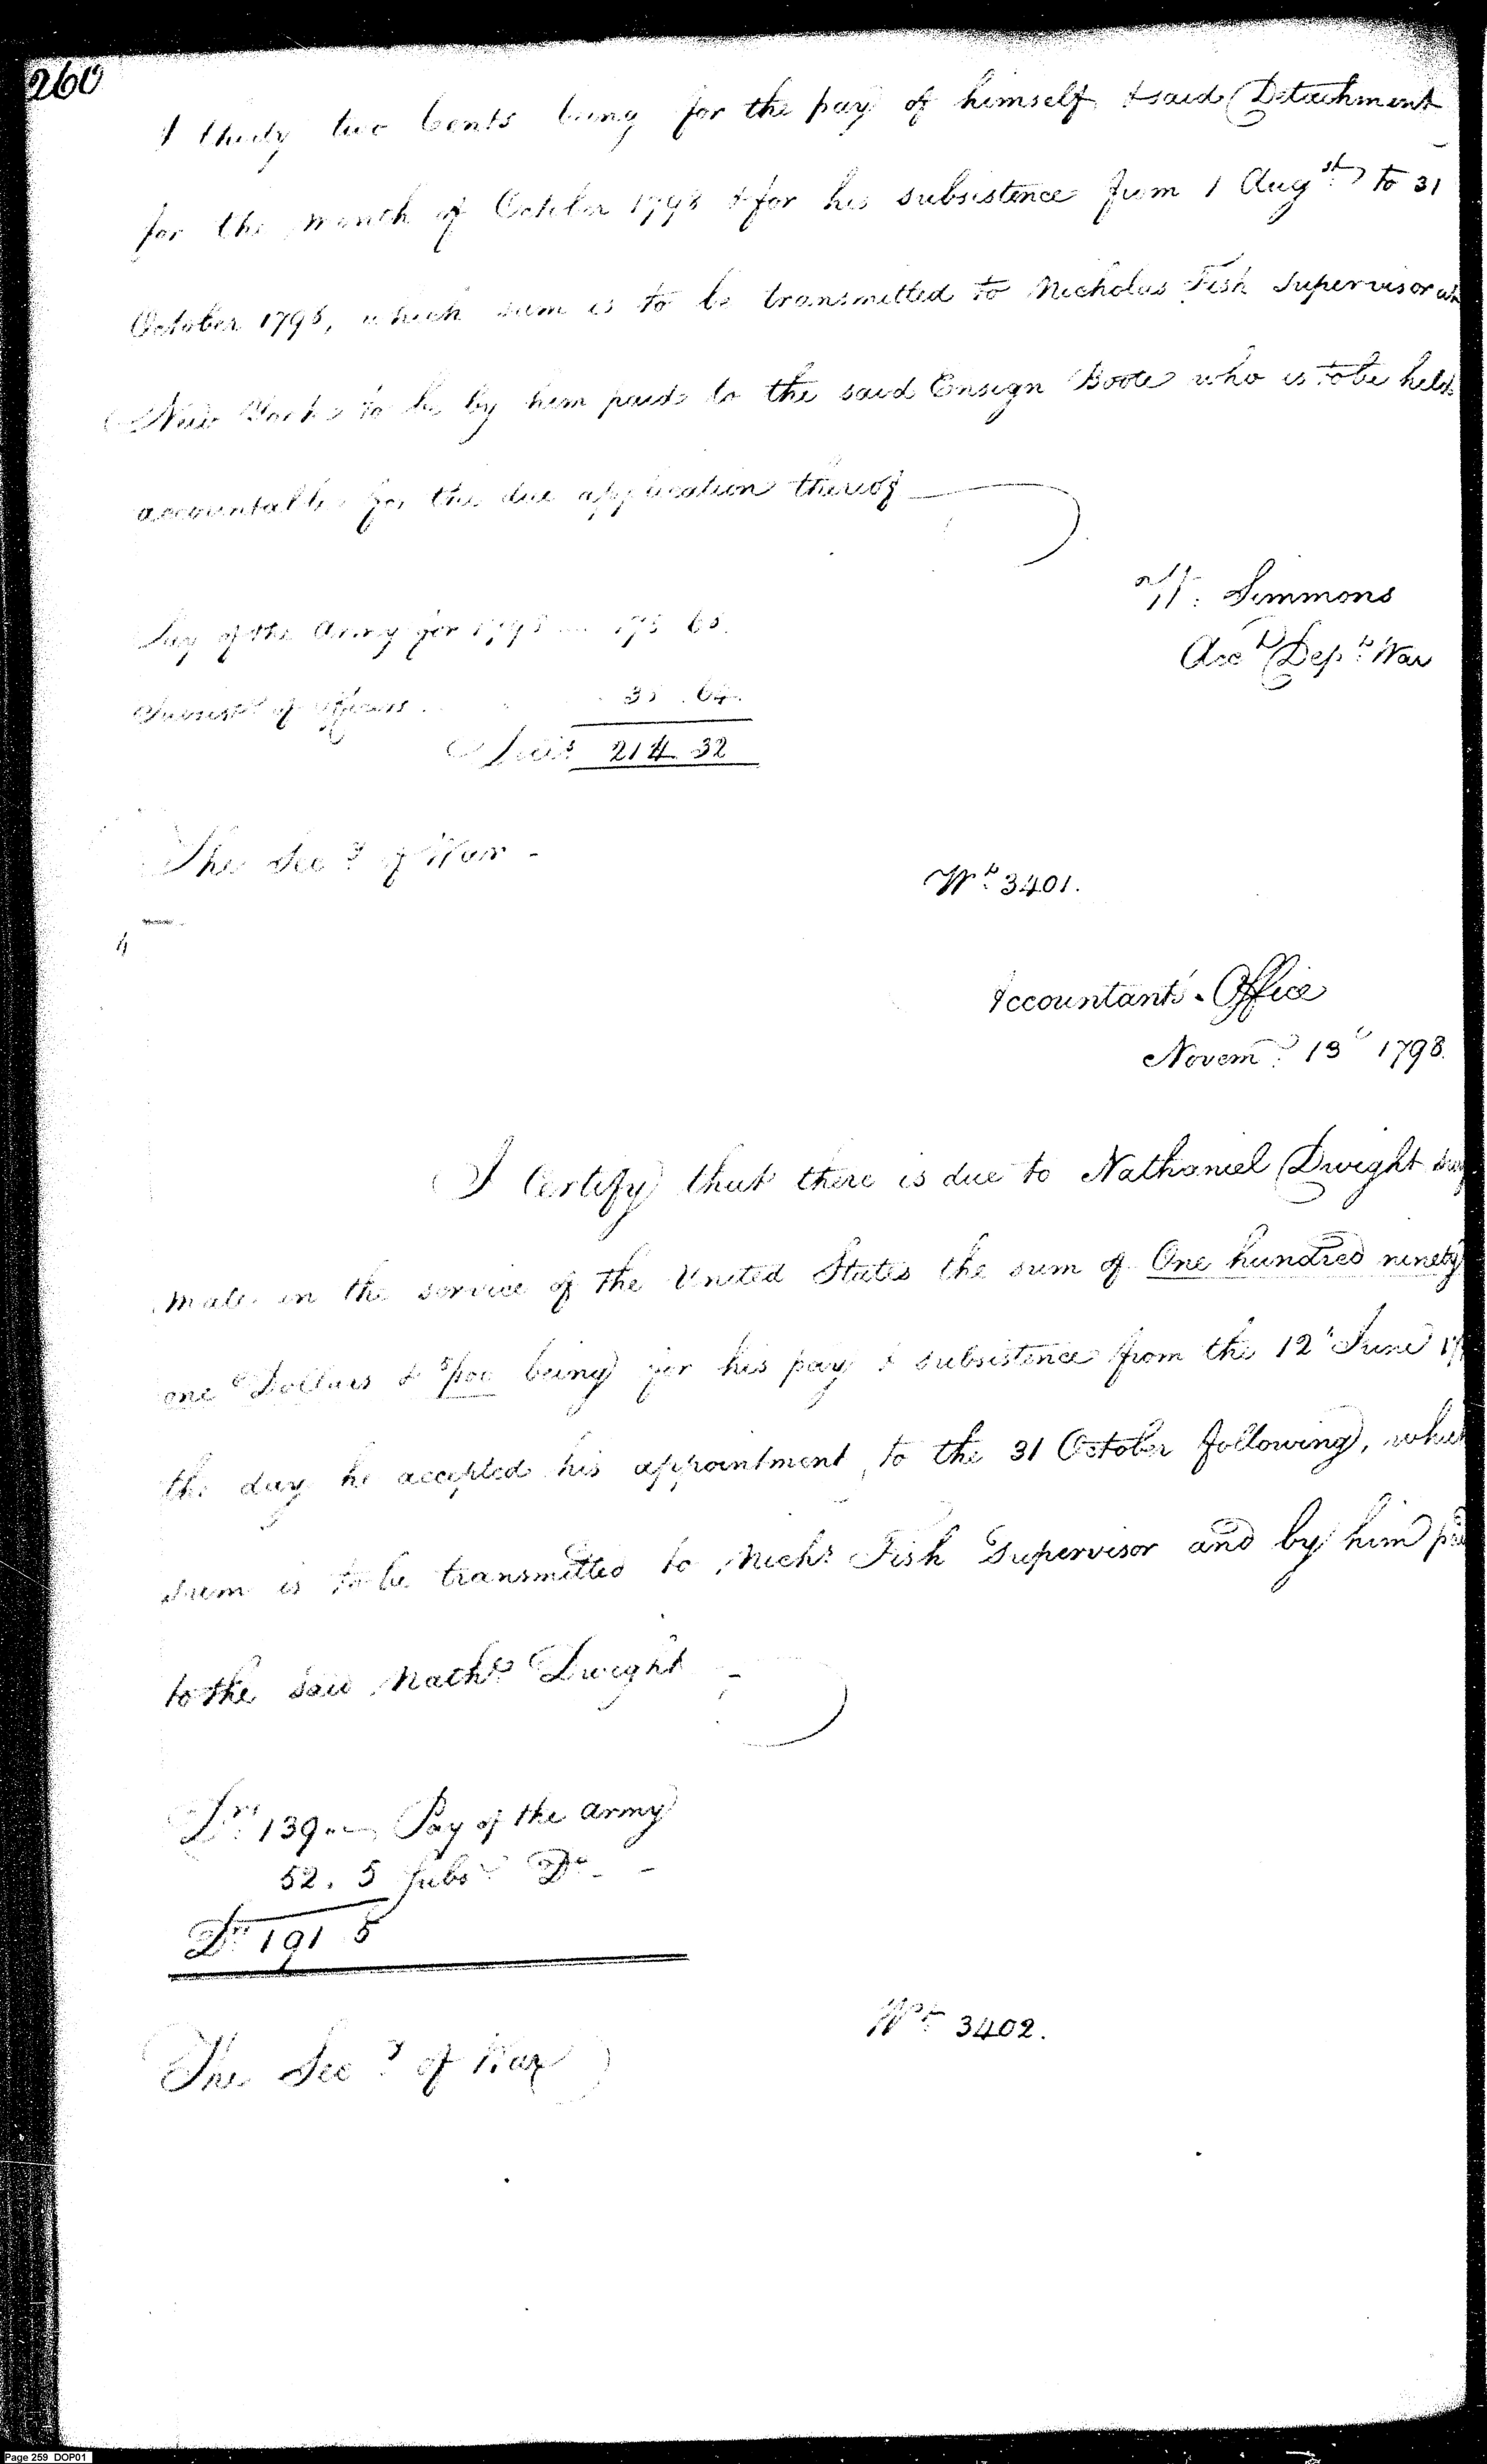 260
& thirty two Cents being for the pay of himself & said Detachment
for the month of October 1798 & for his subsistence from 1 Augst to 31
October 1798, which sum is to be transmitted to Nicholas Fish Supervisor
New York to be by him paid to the said Ensign Boote who is to be held
accountable for the due application thereof
W. Simmons
Acct Dept War
Pay of the Army for 1798 178 68.
Subsist of officers 35 . 64.
214 32
The Secy of War -
Wt 3401.
Accountants Office
Novemr 13th 1798.
I Certify that there is due to Nathaniel Dwight
mate in the service of the United States the sum of One hundred ninety
one Dollars & 5/100 being for his pay & subsistence from the 12th June
the day he accepted his appointment, to the 31 October following, which
sum is to be transmitted to Nichs Fish Supervisor and by him
to the said Nathl Dwight
Drs 139 " - Pay of the army
52 . 5 Subs Do - -
Drs 191 5
The Secy of War
Wt 3402.
Page 259 DOP01